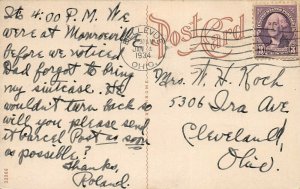 St 4:00 P.M. We
were at Monroeville
before we noticed
Dad forgot to bring
my suitcase. He
wouldn't turn back so
will you please send
it Parcel Post as soon
as possible?
Thanks,
Roland.
Post Card
BELLEVUE
1934
OHIO
Mrs. W. H. Koch
5306 Ira Ave
Cleveland,
Ohio.